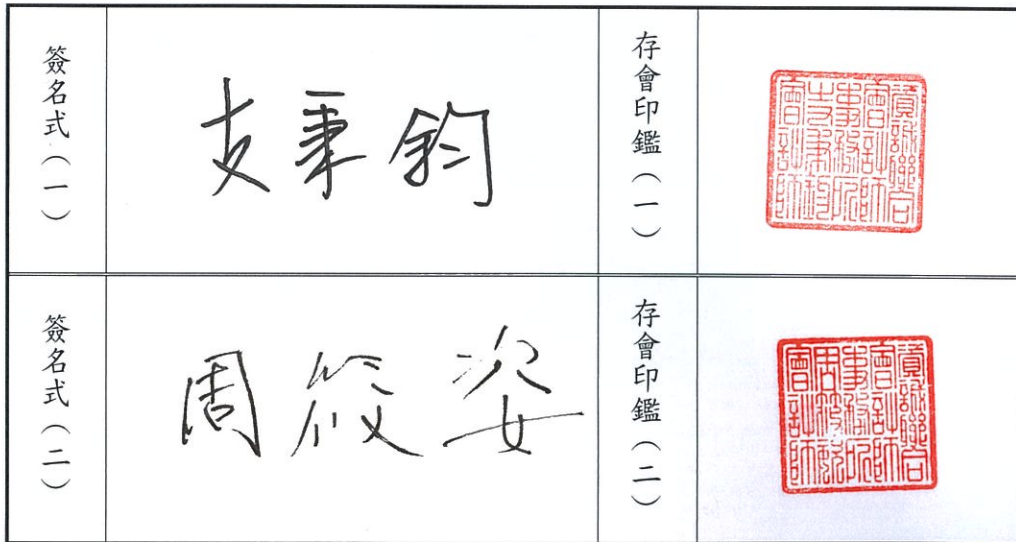 簽名式（一）
支秉鈞
存會印鑑（一）
資誠聯合
會計師
事務所
支秉鈞
會計師
簽名式（二）
周筱姿
存會印鑑（二）
資誠聯合
會計師
事務所
周筱姿
會計師